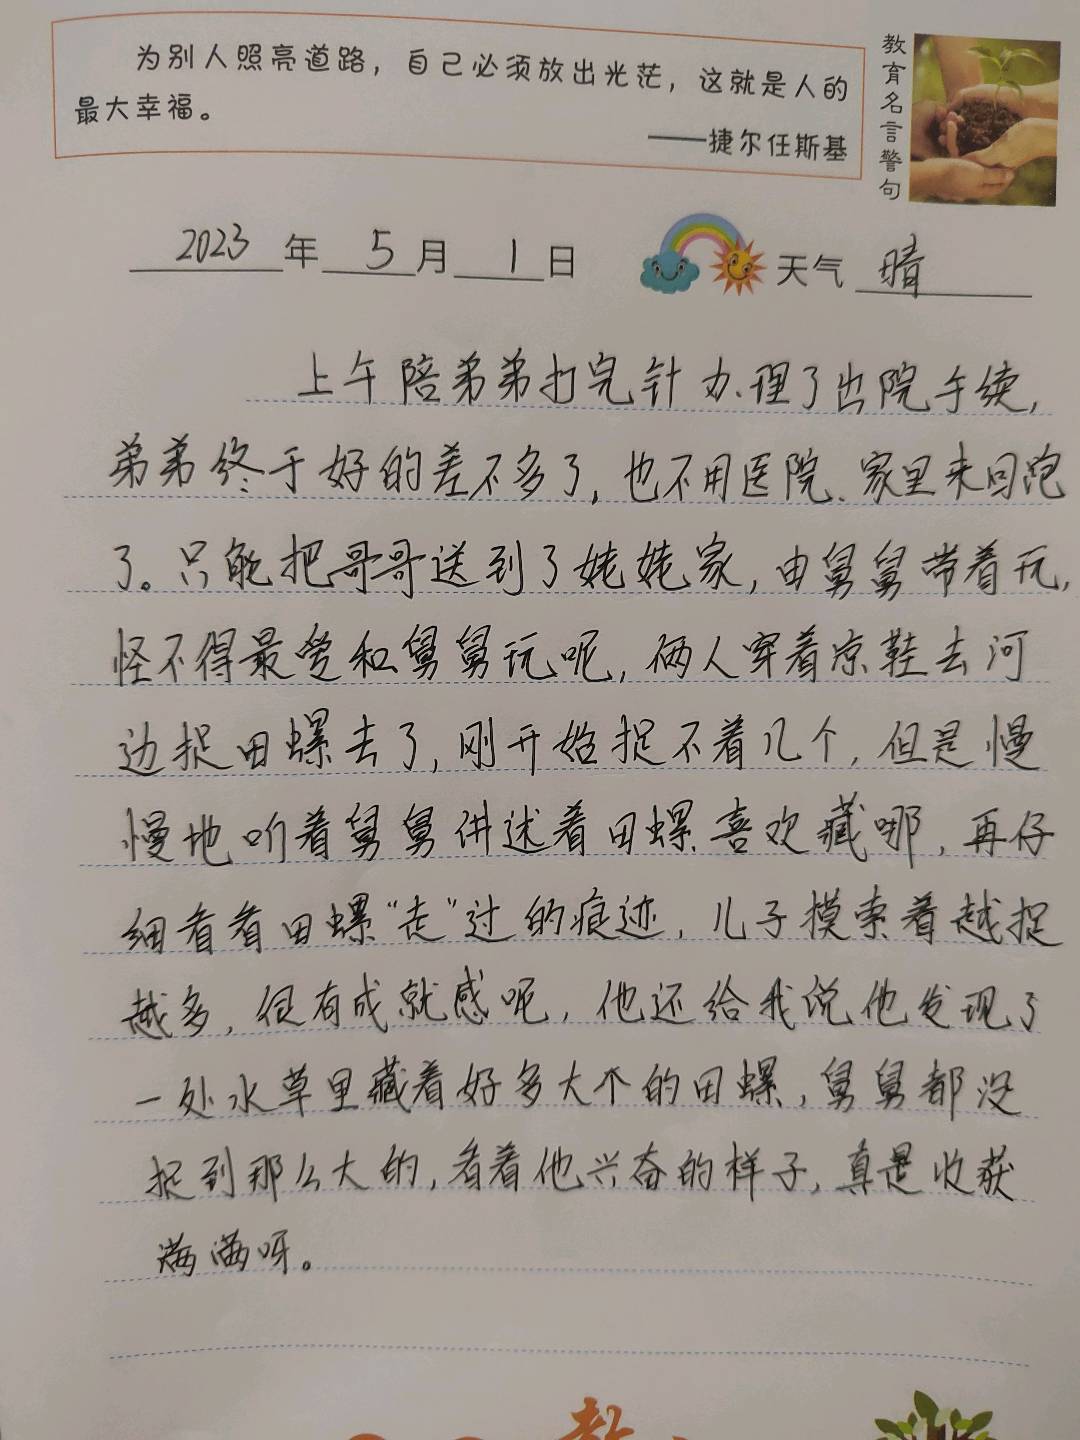 为别人照亮道路，自己必须放出光茫，这就是人的
最大幸福。
——捷尔任斯基
教育名言警句
2023年5月1日 天气 晴
上午陪弟弟打完针办理了出院手续，
弟弟终于好的差不多了，也不用医院、家里来回跑
了。只能把哥哥送到了姥姥家，由舅舅带着玩，
怪不得最爱和舅舅玩呢，俩人穿着凉鞋去河
边捉田螺去了，刚开始捉不着几个，但是慢
慢地听着舅舅讲述着田螺喜欢藏哪，再仔
细看看田螺“走”过的痕迹，儿子摸索着越捉
越多，很有成就感呢，他还给我说他发现了
一处水草里藏着好多大个的田螺，舅舅都没
捉到那么大的，看着他兴奋的样子，真是收获
满满呀。